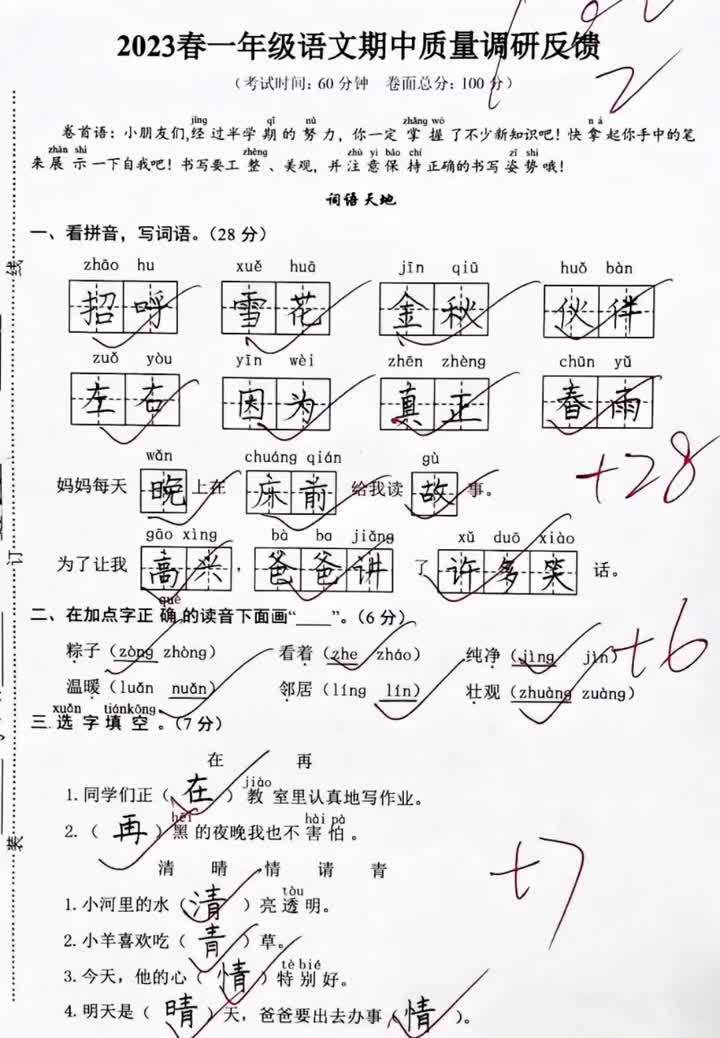 2023春一年级语文期中质量调研反馈
（考试时间：60分钟 卷面总分：100分）
jīng qī nǔ zhǎng wò ná
卷首语：小朋友们，经过半学期的努力，你一定掌握了不少新知识吧！快拿起你手中的笔
zhǎn shì zhěng zhù yì bǎo chí zī shì
来展示一下自我吧！书写要工整、美观，并注意保持正确的书写姿势哦！
词语天地
一、看拼音，写词语。（28分）
zhāo hu xuě huā jīn qiū huǒ bàn
招呼 雪花 金秋 伙伴
zuǒ yòu yīn wèi zhēn zhèng chūn yǔ
左右 因为 真正 春雨
wǎn chuáng qián gù
妈妈每天晚上在床前给我读故事。
+28
gāo xìng bà ba jiǎng xǔ duō xiào
为了让我高兴，爸爸讲了许多笑话。
què
二、在加点字正确的读音下面画“____”。（6分）
粽子（zòng zhòng） 看着（zhe zháo） 纯净（jìng jìn）
+6
温暖（luǎn nuǎn） 邻居（líng lín） 壮观（zhuàng zuàng）
xuǎn tiánkōng
三.选字填空。（7分）
在 再
jiào
1.同学们正（在）教室里认真地写作业。
hēi hài pà
2.（再）黑的夜晚我也不害怕。
清 晴 情 请 青
+7
tòu
1.小河里的水（清）亮透明。
2.小羊喜欢吃（青）草。
tè bié
3.今天，他的心（情）特别好。
4.明天是（晴）天，爸爸要出去办事（情）。
线
订
装